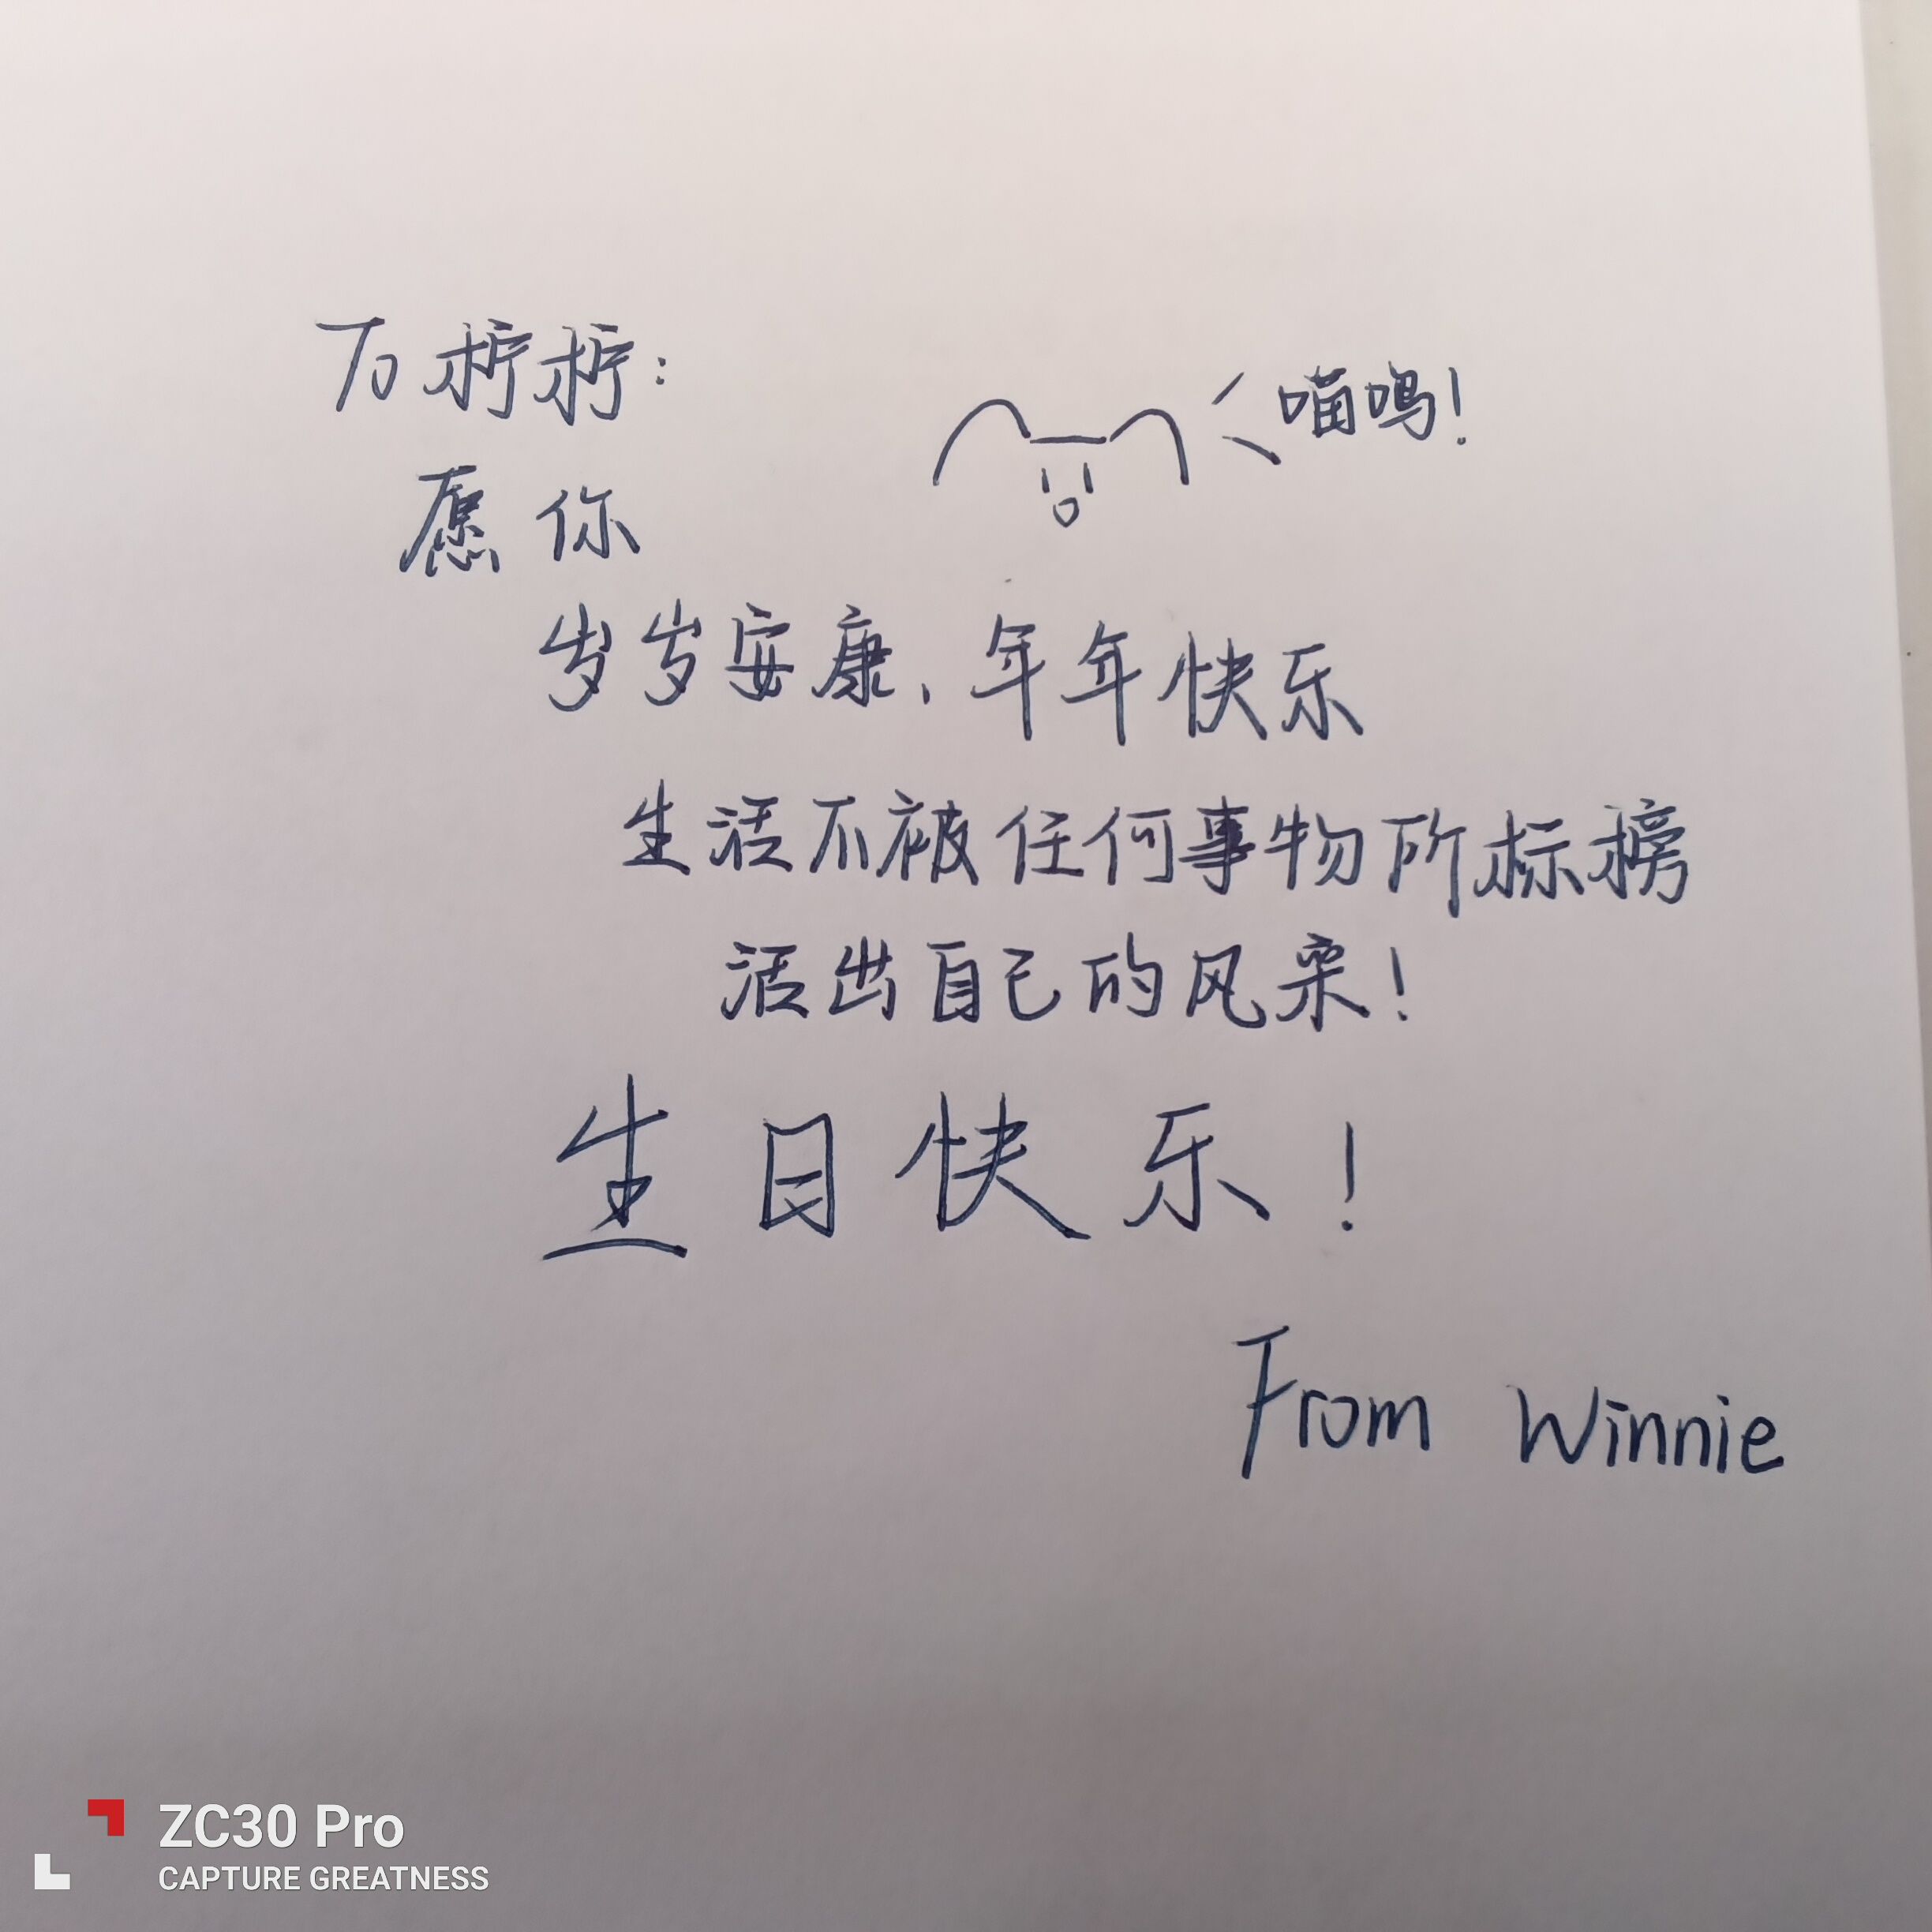 To 柠柠:
喵呜!
愿你
岁岁安康,年年快乐
生活不被任何事物所标榜
活出自己的风采!
生日快乐!
From Winnie
ZC30 Pro
CAPTURE GREATNESS